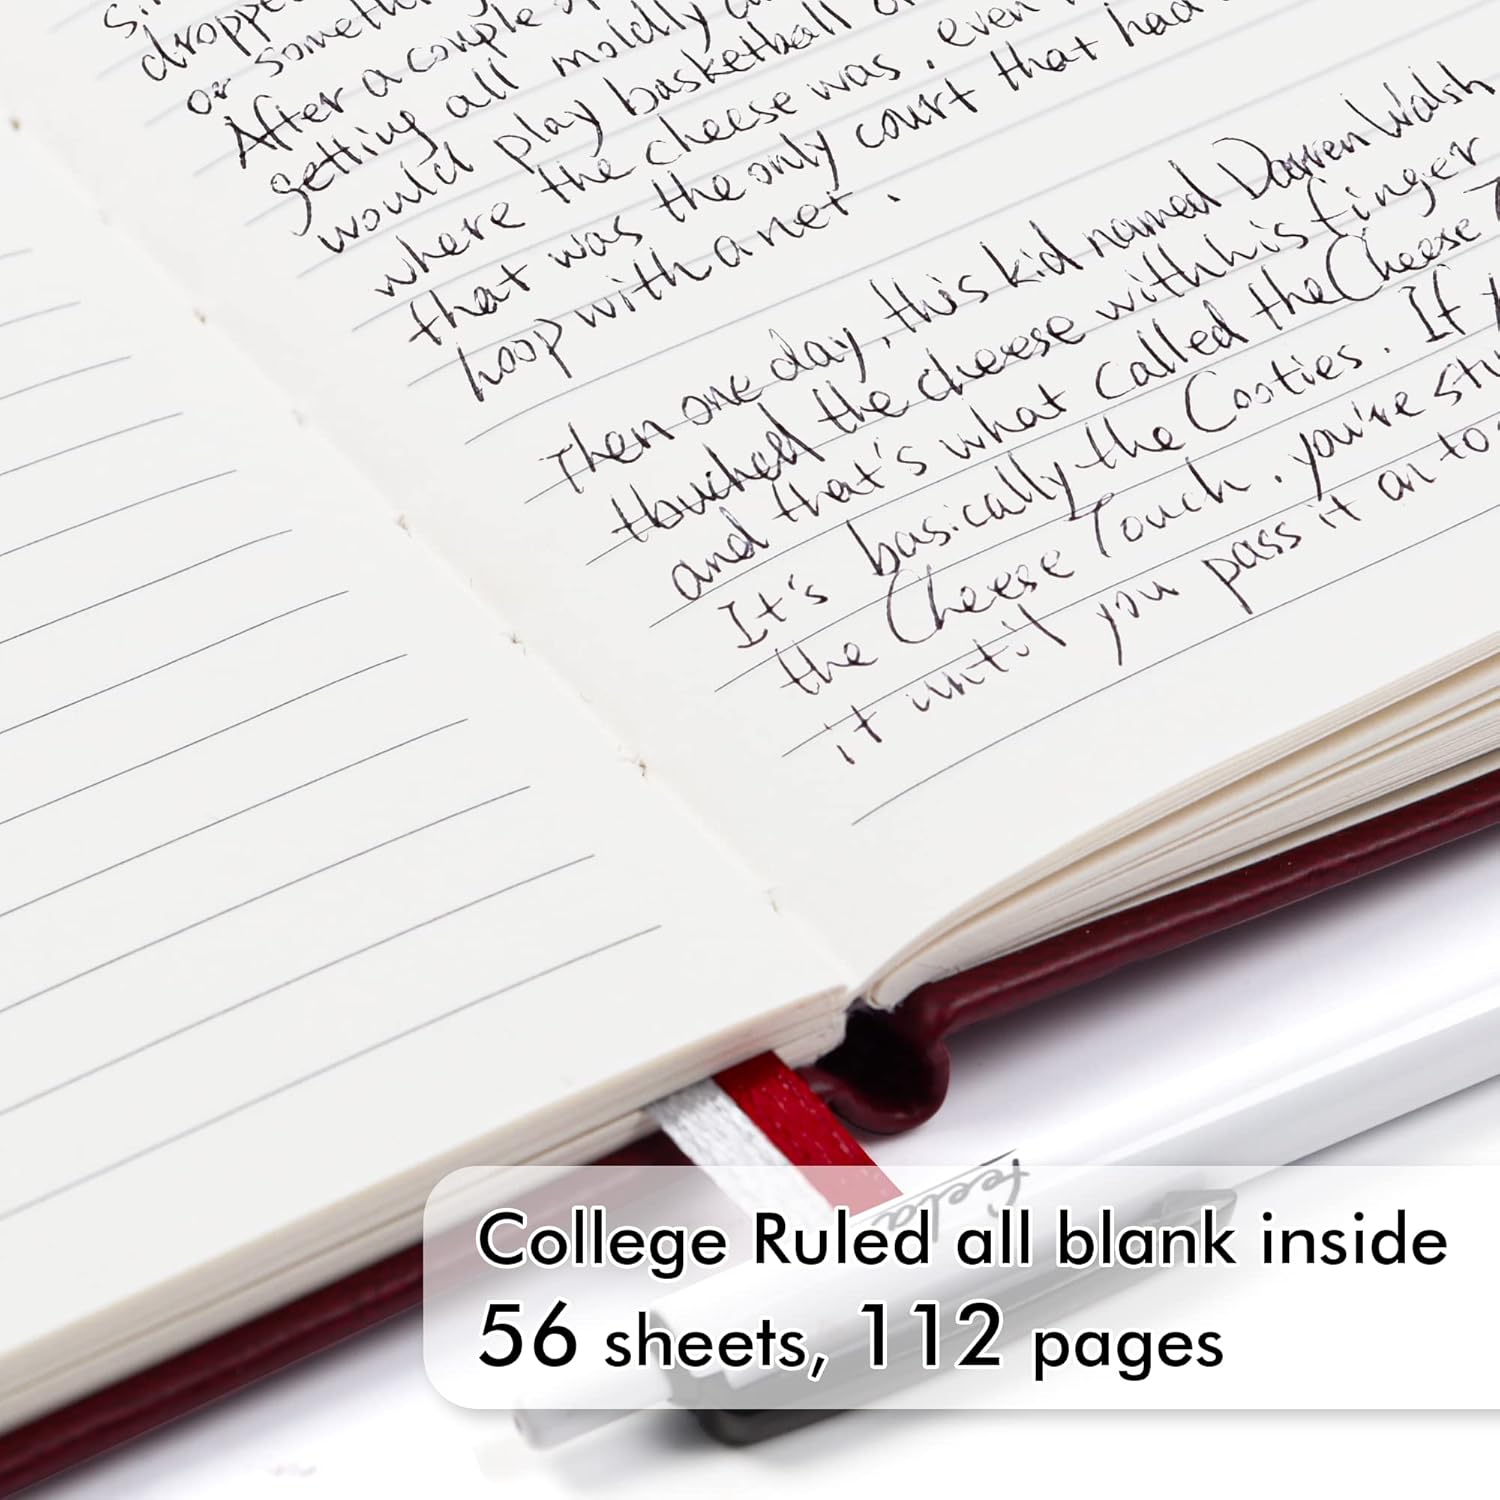 dropped
or
After a couple
getting all moldly
would play basketball
where the cheese was, even
that was the only court that had
hoop with a net.
Then one day, this kid named Darren Walsh
touched the cheese with his finger
and that's what called the Cheese
It's basically the Cooties. If
the Cheese Touch, you're
it until you pass it on to
feela
College Ruled all blank inside
56 sheets, 112 pages